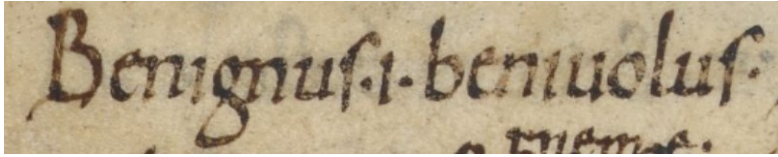 Benignus·i·beniuolus·